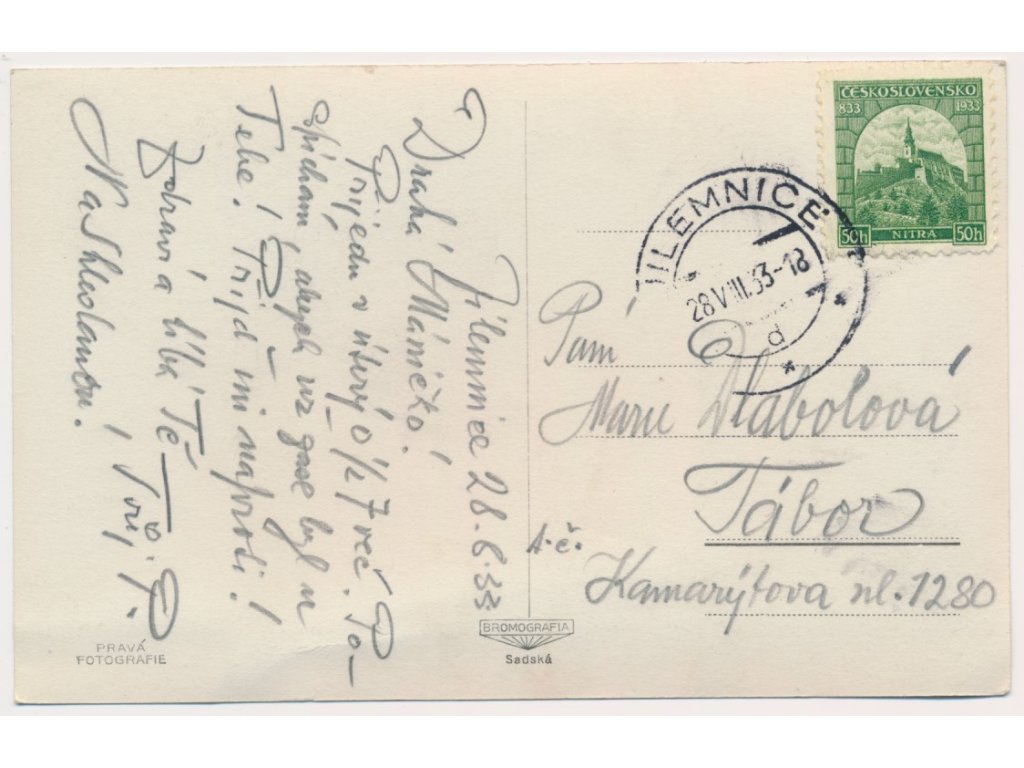 Jilemnice 28.8.33
Drahá Máničko!
Přijedu v úterý o 1/2 7 več. Po-
spíchám, abych už zase byl u
Tebe! Přijď mi naproti!
Zdraví a líbá Tě
Tvůj
Na shledanou!
ČESKOSLOVENSKO
833 1933
50h NITRA 50h
JILEMNICE
28.VIII.33-18
d
Paní
Marie Dlabolová
Tábor
Kamarýtova ul. 1280
A.č.
BROMOGRAFIA
Sadská
PRAVÁ
FOTOGRAFIE